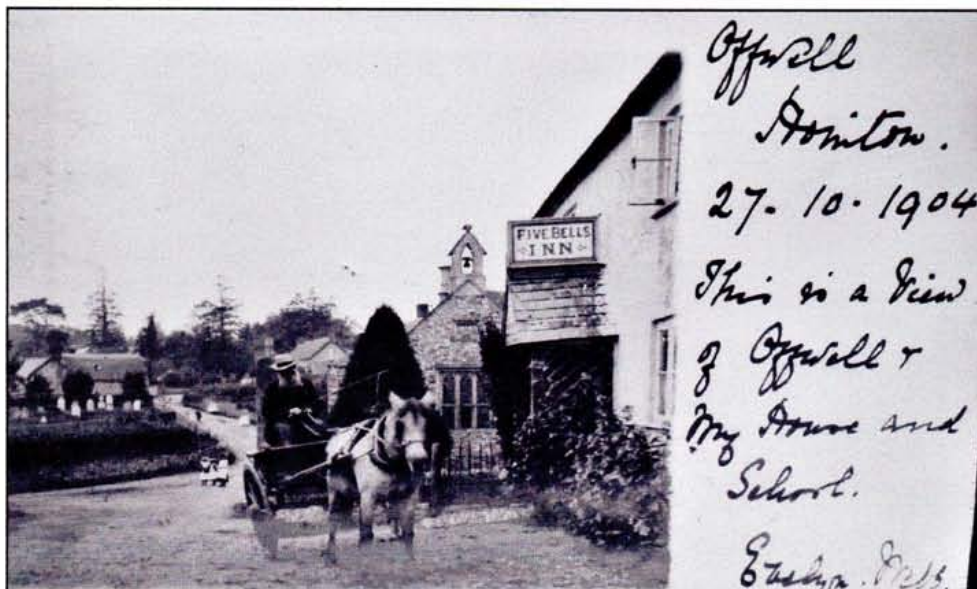 FIVE BELLS
INN
Offwell
Honiton.
27. 10. 1904
This is a View
of Offwell &
My House and
School.
Evelyn